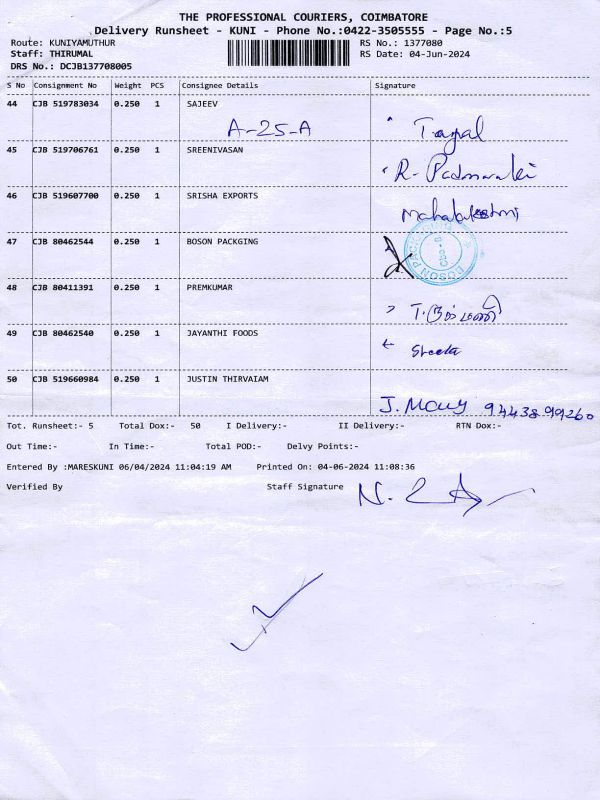 THE PROFESSIONAL COURIERS, COIMBATORE
Delivery Runsheet - KUNI - Phone No.:0422-3505555 - Page No.:5
Route: KUNIYAMUTHUR RS No.: 1377080
Staff: THIRUMAL RS Date: 04-Jun-2024
DRS No.: DCJB137708005
S No Consignment No Weight PCS Consignee Details Signature
44 CJB 519783034 0.250 1 SAJEEV
A-25-A
45 CJB 519706761 0.250 1 SREENIVASAN
R. Padmavathi
46 CJB 519607700 0.250 1 SRISHA EXPORTS
Mahalakshmi
47 CJB 80462544 0.250 1 BOSON PACKGING
BOSON PACKAGING
48 CJB 80411391 0.250 1 PREMKUMAR
49 CJB 80462540 0.250 1 JAYANTHI FOODS
50 CJB 519660984 0.250 1 JUSTIN THIRVAIAM
J. Mary 94438 99260
Tot. Runsheet:- 5 Total Dox:- 50 I Delivery:- II Delivery:- RTN Dox:-
Out Time:- In Time:- Total POD:- Delvy Points:-
Entered By :MARESKUNI 06/04/2024 11:04:19 AM Printed On: 04-06-2024 11:08:36
Verified By Staff Signature